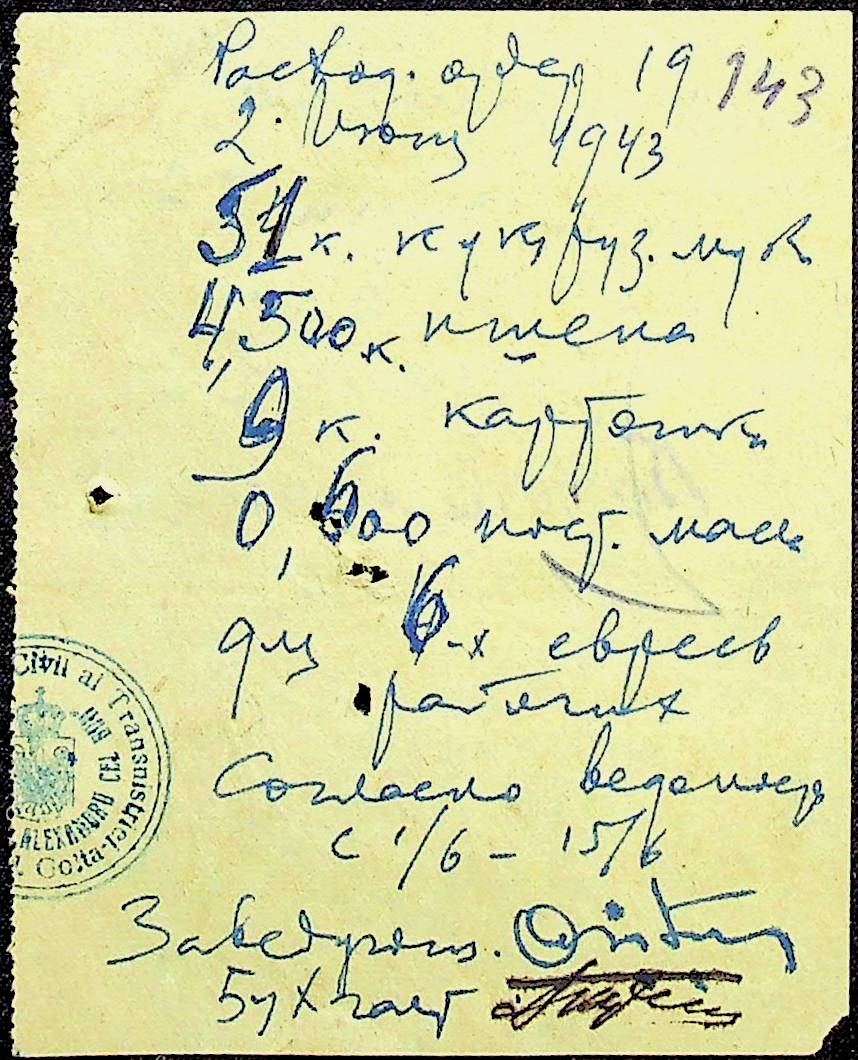 Расход. ордер 19 143
2 Июня 1943
51 к. кукуруз. мук
4,500 к. пшена
9 к. картошки
0,600 пост. масл
для 6-х евреев
рабочих
Согласно ведомости
с 1/6 – 15/6
Заведующ.
Бухгалт
Civil al Transnistriei
ALEXANDRU CEL BUN
Golta